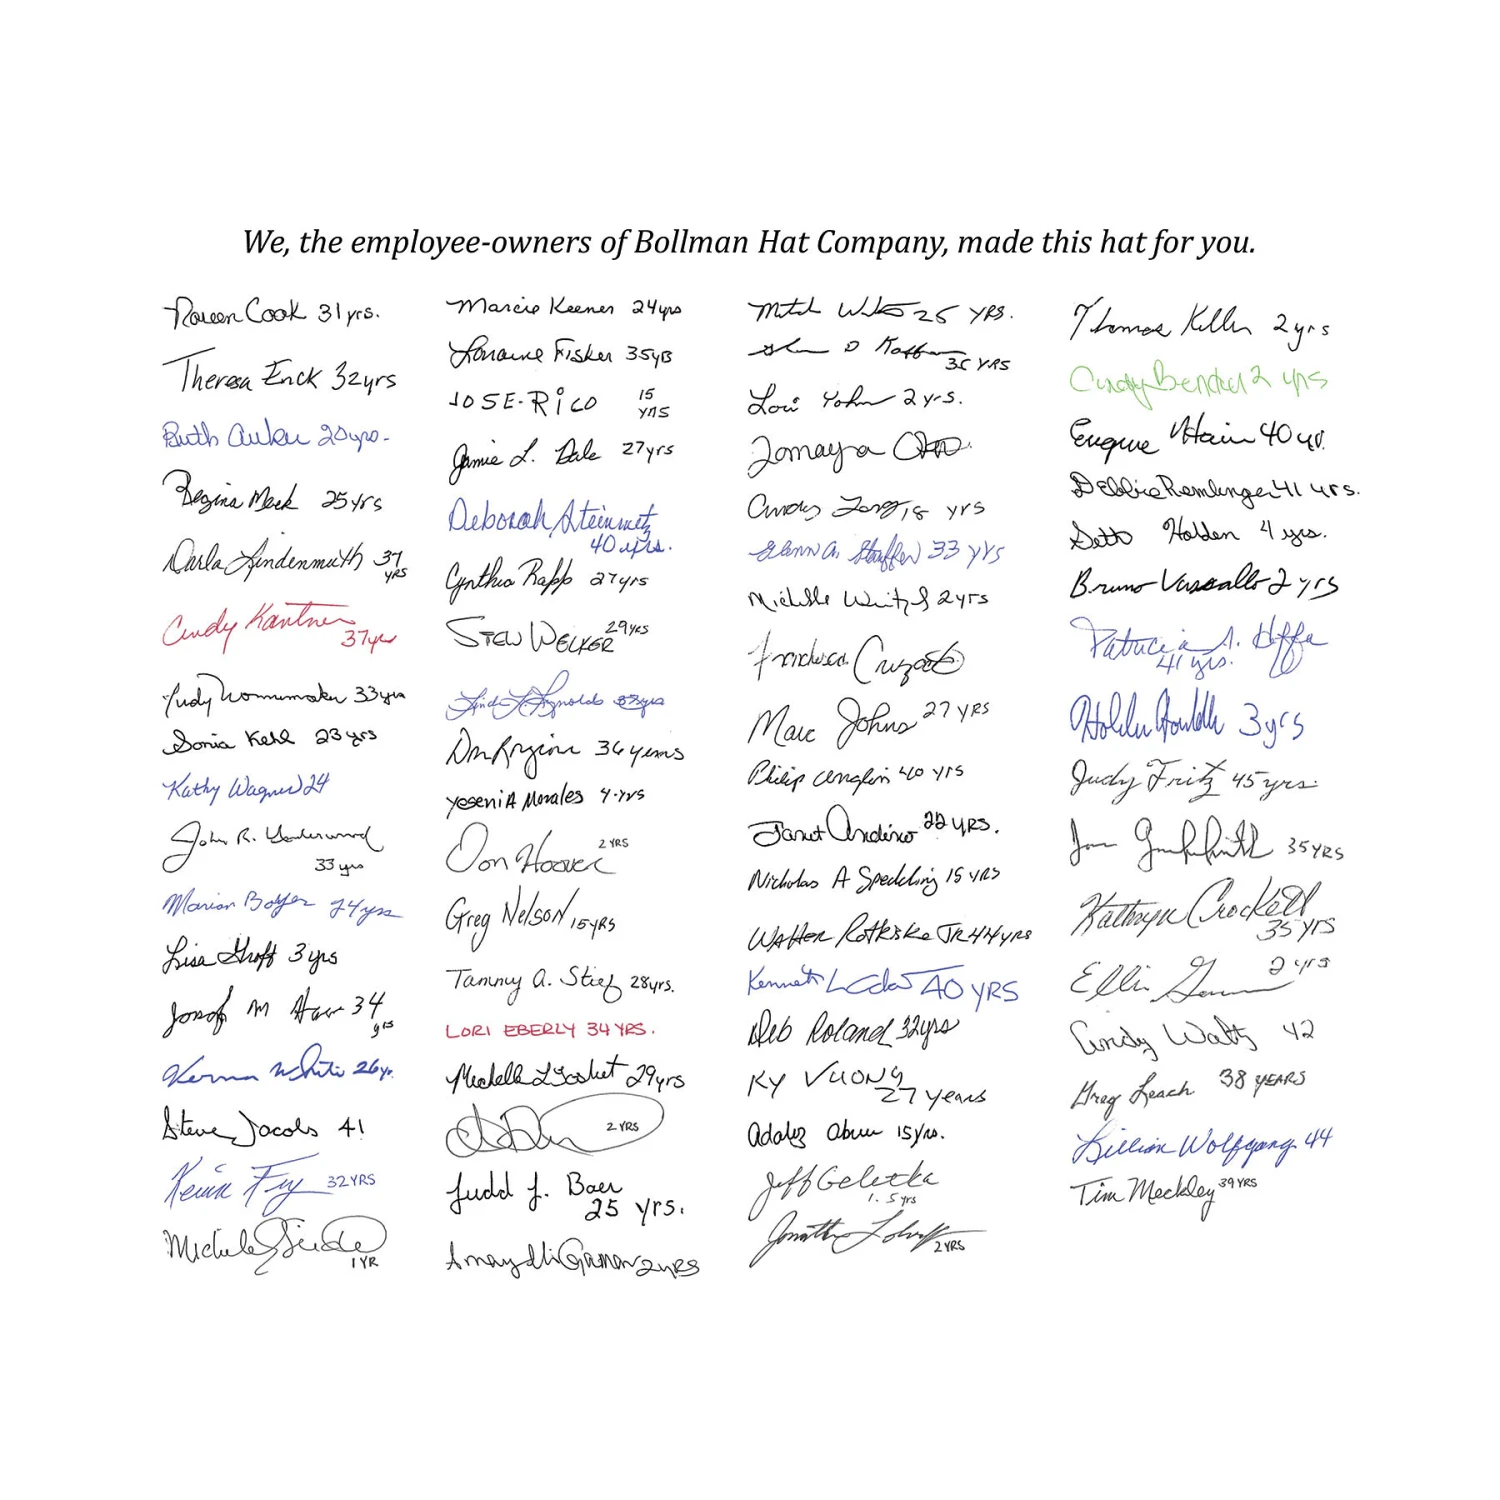 We, the employee-owners of Bollman Hat Company, made this hat for you.
Noreen Cook 31 yrs.
Theresa Enck 32 yrs
Ruth Auker 20 yrs.
Regina Meck 25 yrs
Darla Lindenmuth 37
yrs
Cindy Kantner
37 yr
Judy Wonnemaker 33 yrs
Sonia Kehl 23 yrs
Kathy Wagner 24
John R.
33 yrs
Marian Boyer 24 yrs
Lisa Groff 3 yrs
Joseph M 34
yrs
White 26 yr.
Steve Jacobs 41
Kevin Fry 32 YRS
Michele
1 YR
Marcie Keener 24 yrs
Lorraine Fisher 35 yrs
JOSE-RICO 15
yrs
Jamie L. Dale 27 yrs
Deborah Steinmetz
40 yrs.
Cynthia Rapp 27 yrs
STEW WELKER 29 YRS
Linda L. Reynolds
36 years
YeseniA Morales 4 yrs
Don Hoover 2 YRS
Greg Nelson 15 YRS
Tammy A. Stief 28 yrs.
LORI EBERLY 34 YRS.
29 yrs
2 YRS
Judd J. Baer
25 yrs.
2 yrs
Mitch 25 YRS.
D
35 YRS
Lori Yohn 2 yrs.
Tomaya
Cindy 18 yrs
Glenn A. Stauffer 33 yrs
Michelle Weitzel 2 yrs
Francisca
Marc Johns 27 YRS
Philip 40 yrs
Janet Andino 22 YRS.
Nicholas A Speckling 15 YRS
Walter Rotkiske JR 44 yrs
Kenneth 40 YRS
Deb Roland 32 yrs
KY VUONG
27 years
15 yrs.
Jeff Geletka
1.5 yrs
2 YRS
Thomas Keller 2 yrs
Cindy Bender 2 yrs
Eugene 40 yr.
Debbie Remlinger 41 yrs.
Seth Holden 4 yrs.
Bruno Vascallo 2 yrs
Patricia A.
41 yrs.
3 yrs
Judy Fritz 45 yrs.
35 YRS
Kathryn Crockett
35 yrs
2 yrs
Cindy Waltz 42
Greg Leach 38 YEARS
Lillian Wolfgang 44
Tim Meckley 39 YRS